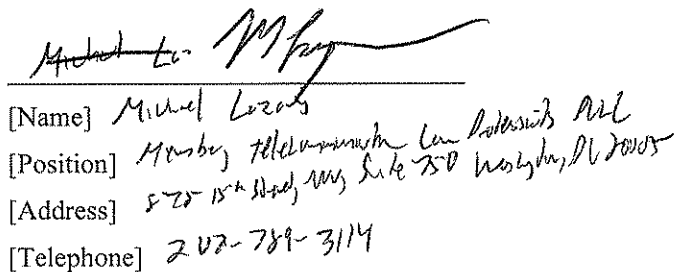 Michael
[Name] Michael Lazarus
[Position] Member, Telecommunications Law Professionals PLLC
[Address] 875 15th Street, NW, Suite 750 Washington, DC 20005
[Telephone] 202-789-3114